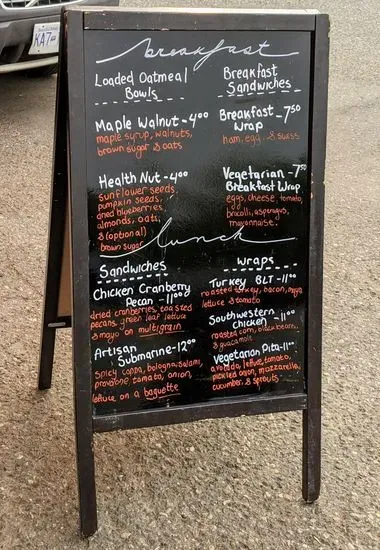 KA7
breakfast
Loaded Oatmeal
Bowls
Maple Walnut - 4.00
maple syrup, walnuts,
brown sugar & oats
Health Nut - 4.00
sunflower seeds,
pumpkin seeds,
dried blueberries,
almonds, oats,
& (optional)
brown sugar
Breakfast
Sandwiches
Breakfast - 7.50
Wrap
ham, egg, & swiss
Vegetarian - 7.50
Breakfast Wrap
eggs, cheese, tomato,
brocolli, asparagus,
mayonnaise.
lunch
Sandwiches
Chicken Cranberry
Pecan - 11.00
dried cranberries, toasted
pecans, green leaf lettuce
& mayo on multigrain
Artisan
Submarine - 12.00
Spicy coppa, bologna, salami,
provolone, tomato, onion,
lettuce on a baguette
Wraps
Turkey BLT - 11.00
roasted turkey, bacon, mayo
lettuce & tomato
Southwestern
Chicken - 11.00
roasted corn, black beans,
& guacamole
Vegetarian Pita - 11.00
avocado, lettuce, tomato,
pickled onion, mozzarella,
cucumber & sprouts